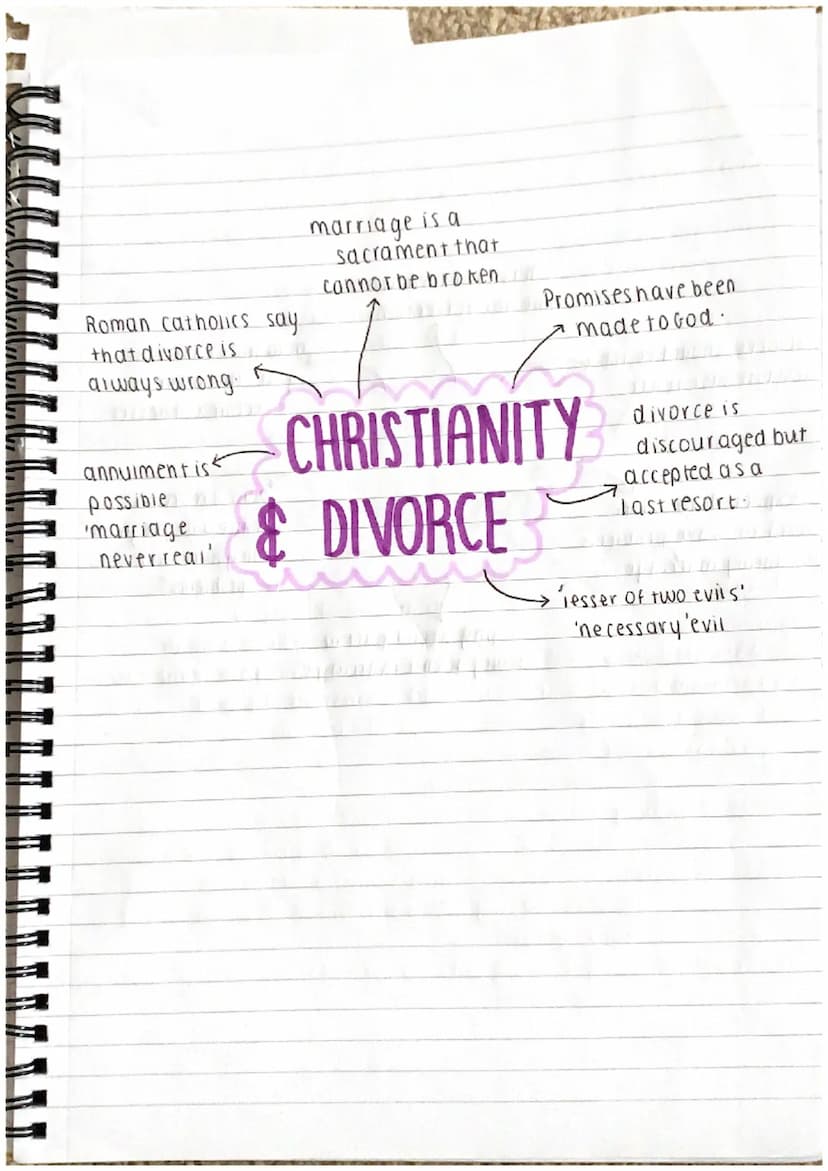 marriage is a
sacrament that
cannot be broken
Promises have been
made to God.
Roman catholics say
that divorce is
always wrong.
CHRISTIANITY
& DIVORCE
divorce is
discouraged but
accepted as a
last resort.
annulment is
possible
'marriage
never real'
'lesser of two evils'
'necessary' evil